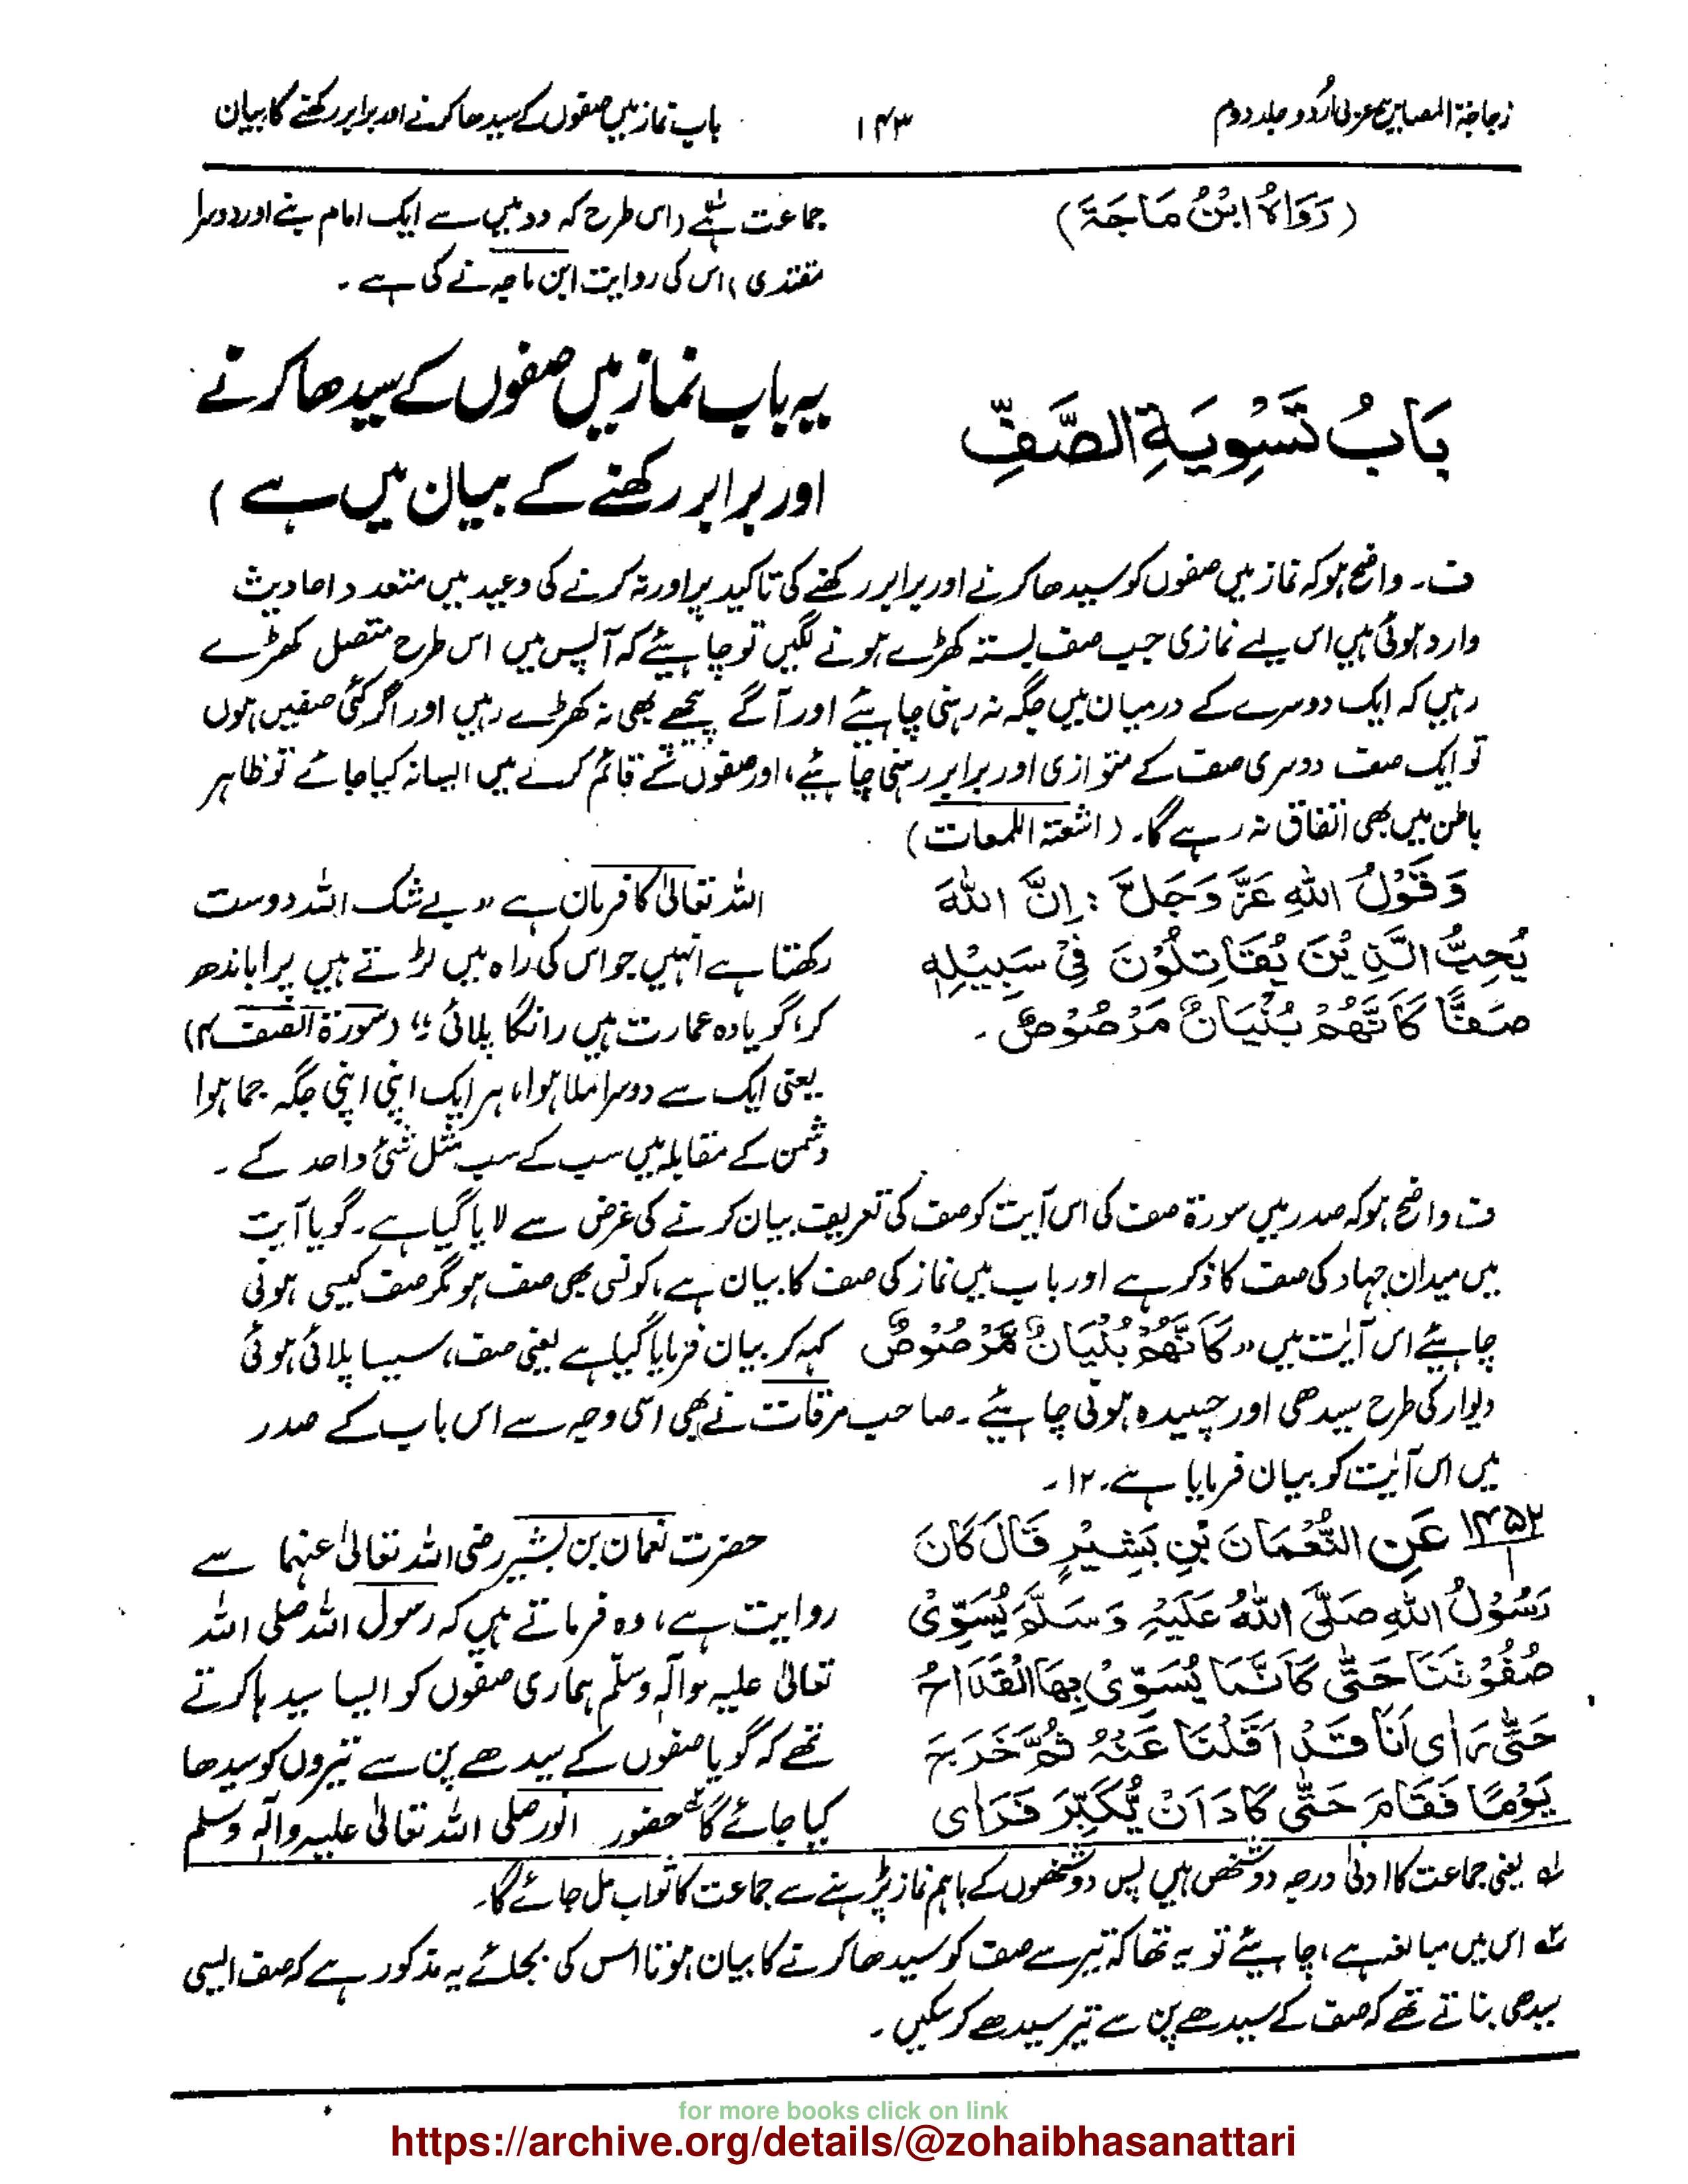 زجاجۃ المصابیح عربی اُردو جلد دوم
۱۴۳
باب نماز میں صفوں کے سیدھا کرنے اور برابر رکھنے کا بیان
(رَوَاهُ ابْنُ مَاجَةَ)
جماعت ہے (اس طرح کہ دو میں سے ایک امام بنے اور دوسرا
مقتدی) اس کی روایت ابن ماجہ نے کی ہے۔
بَابُ تَسْوِيَةِ الصَّفِّ
یہ باب نماز میں صفوں کے سیدھا کرنے
اور برابر رکھنے کے بیان میں ہے)
ف۔ واضح ہو کہ نماز میں صفوں کو سیدھا کرنے اور برابر رکھنے کی تاکید پر اور نہ کرنے کی وعید میں متعدد احادیث
وارد ہوئی ہیں اس لیے نمازی جب صف بستہ کھڑے ہونے لگیں تو چاہیئے کہ آپس میں اس طرح متصل کھڑے
رہیں کہ ایک دوسرے کے درمیان میں جگہ نہ رہنی چاہیئے اور آگے پیچھے بھی نہ کھڑے رہیں اور اگر کئی صفیں ہوں
تو ایک صف دوسری صف کے متوازی اور برابر رہنی چاہیئے، اور صفوں کے قائم کرنے میں ایسا نہ کیا جائے تو ظاہر
باطن میں بھی اتفاق نہ رہے گا۔ (اشعۃ اللمعات)
وَقَوْلُ اللهِ عَزَّ وَجَلَّ: إِنَّ اللهَ
يُحِبُّ الَّذِيْنَ يُقَاتِلُوْنَ فِيْ سَبِيْلِهٖ
صَفًّا كَاَنَّهُمْ بُنْيَانٌ مَرْصُوْصٌ۔
اللہ تعالیٰ کا فرمان ہے ”بے شک اللہ دوست
رکھتا ہے انہیں جو اس کی راہ میں لڑتے ہیں پرا باندھ
کر، گویا وہ عمارت ہیں رانگا پلائی“ (سورۃ الصف ۴)
یعنی ایک سے دوسرا ملا ہوا، ہر ایک اپنی اپنی جگہ جما ہوا
دشمن کے مقابلہ میں سب کے سب مثل شئ واحد کے۔
ف واضح ہو کہ صدر میں سورۃ صف کی اس آیت کو صف کی تعریف بیان کرنے کی غرض سے لایا گیا ہے۔ گویا آیت
میں میدان جہاد کی صف کا ذکر ہے اور باب میں نماز کی صف کا بیان ہے، کونسی بھی صف ہو مگر صف کیسی ہونی
چاہیئے اس آیٰت میں ”كَاَنَّهُمْ بُنْيَانٌ مَّرْصُوْصٌ کہہ کر بیان فرمایا گیا ہے یعنی صف، سیسا پلائی ہوئی
دیوار کی طرح سیدھی اور چسپیدہ ہونی چاہیئے۔ صاحب مرقات نے بھی اسی وجہ سے اس باب کے صدر
میں اس آیٰت کو بیان فرمایا ہے۔ ۱۲۔
۱۴۵۲/۱ عَنِ النُّعْمَانَ بْنِ بَشِيْرٍ قَالَ كَانَ
رَسُوْلُ اللهِ صَلَّى اللهُ عَلَيْهِ وَسَلَّمَ يُسَوِّيْ
صُفُوْفَنَا حَتّٰى كَاَنَّمَا يُسَوِّيْ بِهَا الْقَدَاحُ
حَتّٰى رَاٰى اَنَا قَدْ اَقَلْنَا عَنْهُ ثُمَّ خَرَجَ
يَوْمًا فَقَامَ حَتّٰى كَادَ اَنْ يُّكَبِّرَ فَرَاى
حضرت نعمان بن بشیر رضی اللہ تعالیٰ عنہما سے
روایت ہے، وہ فرماتے ہیں کہ رسول اللہ صلی اللہ
تعالیٰ علیہ وآلہٖ وسلّم ہماری صفوں کو ایسا سیدہا کرتے
تھے کہ گویا صفوں کے سیدھے پن سے تیروں کو سیدھا
کیا جائے گا حضور انور صلی اللہ تعالیٰ علیہ وآلہٖ وسلم
لہ یعنی جماعت کا ادنیٰ درجہ دو شخص ہیں پس دو شخصوں کے باہم نماز پڑہنے سے جماعت کا ثواب مل جائے گا۔
لہ اس میں مبالغہ ہے، چاہیئے تو یہ تھا کہ تیر سے صف کو سیدھا کرنے کا بیان ہوتا اس کی بجائے یہ مذکور ہے کہ صف ایسی
سیدھی بناتے تھے کہ صف کے سیدھے پن سے تیر سیدھے کر سکیں۔
for more books click on link
https://archive.org/details/@zohaibhasanattari